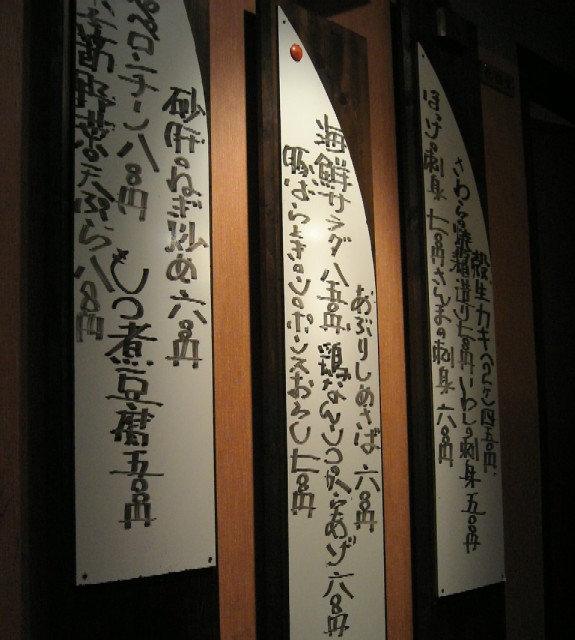 殻生カキ(2ケ)四五〇円
さわら焼霜造り七〇〇円 いわしの刺身 五〇〇円
ほっけの刺身 七〇〇円 さんまの刺身 六〇〇円
あぶりしめさば 六〇〇円
海鮮サラダ 八五〇円 鶏なんこつからあげ 六〇〇円
豚ばらときのこのポンズおろし 七〇〇円
砂肝のねぎ炒め 六〇〇円
八〇〇円 もつ煮豆腐 五〇〇円
野菜の天ぷら 八〇〇円